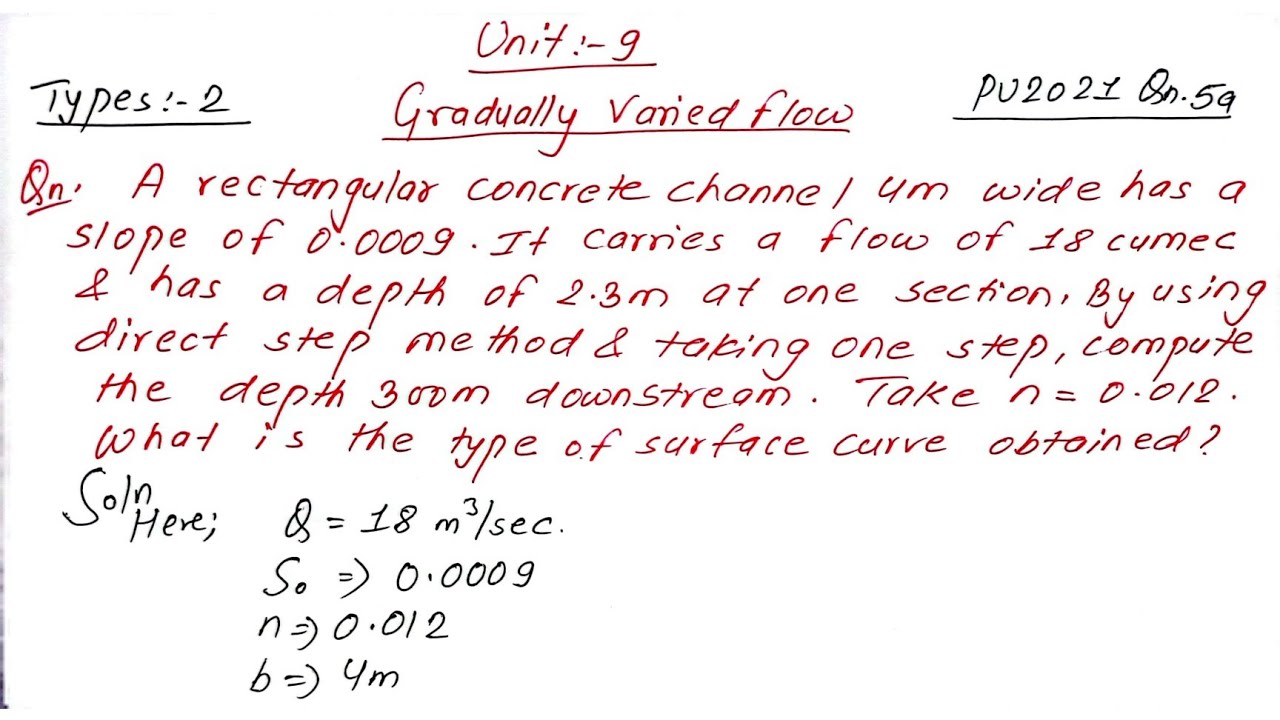 Unit:-9
Types:-2 Gradually Varied flow PU2021 Qn.5a
Qn. A rectangular concrete channel 4m wide has a
slope of 0.0009. It carries a flow of 18 cumec
& has a depth of 2.3m at one section. By using
direct step method & taking one step, compute
the depth 300m downstream. Take n = 0.012.
What is the type of surface curve obtained?
Soln
Here; Q = 18 m³/sec.
So => 0.0009
n => 0.012
b => 4m